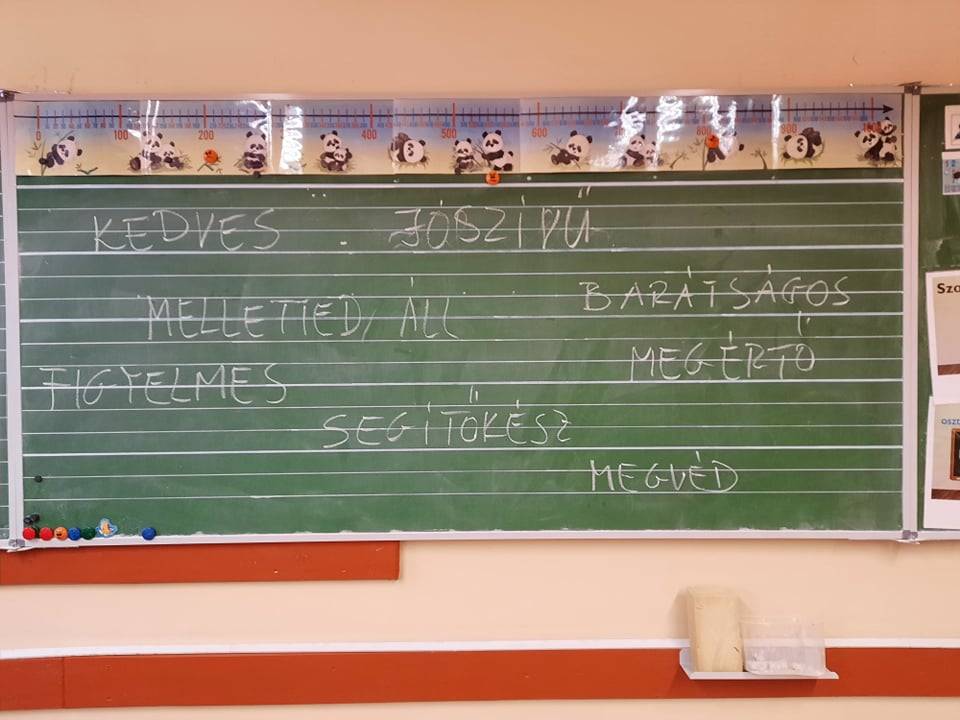 0 100 200 400 500 600 800
KEDVES JÓSZÍVŰ
BARÁTSÁGOS
MELLETTED ÁLL
MEGÉRTŐ
FIGYELMES
SEGÍTŐKÉSZ
MEGVÉD